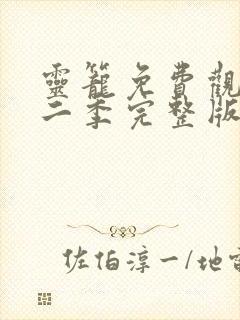 靈籠免費觀
二季完整版
佐伯淳一/地